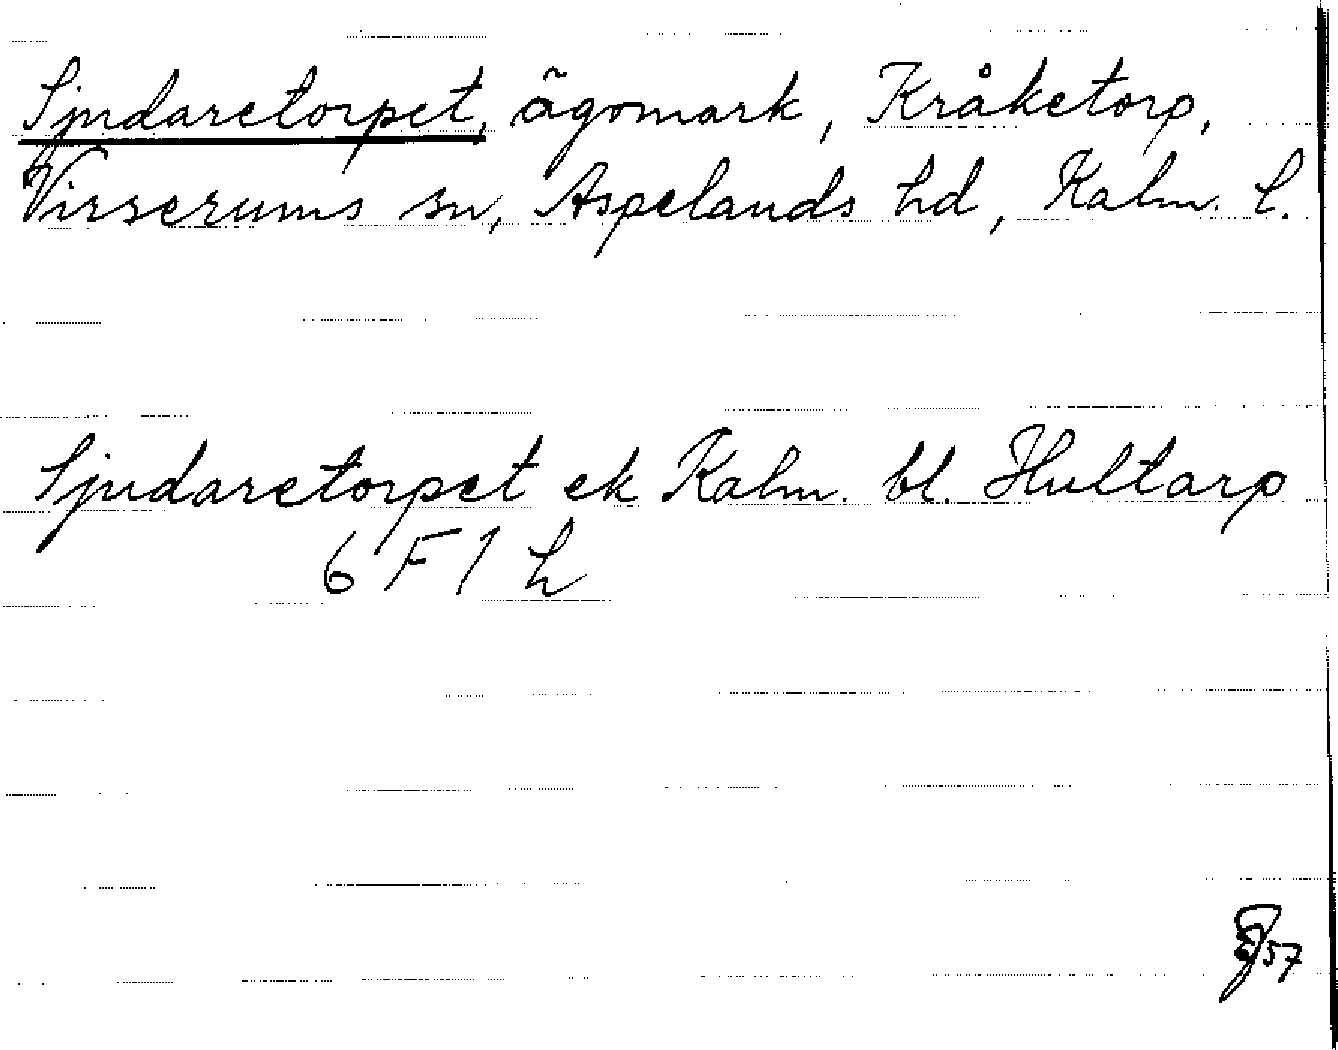 Sjudaretorpet, ägomark, Kråketorp,
Virserums sn, Aspelands hd, Kalm. l.
Sjudaretorpet ek Kalm. bl. Hultarp
6 F 1 h
57